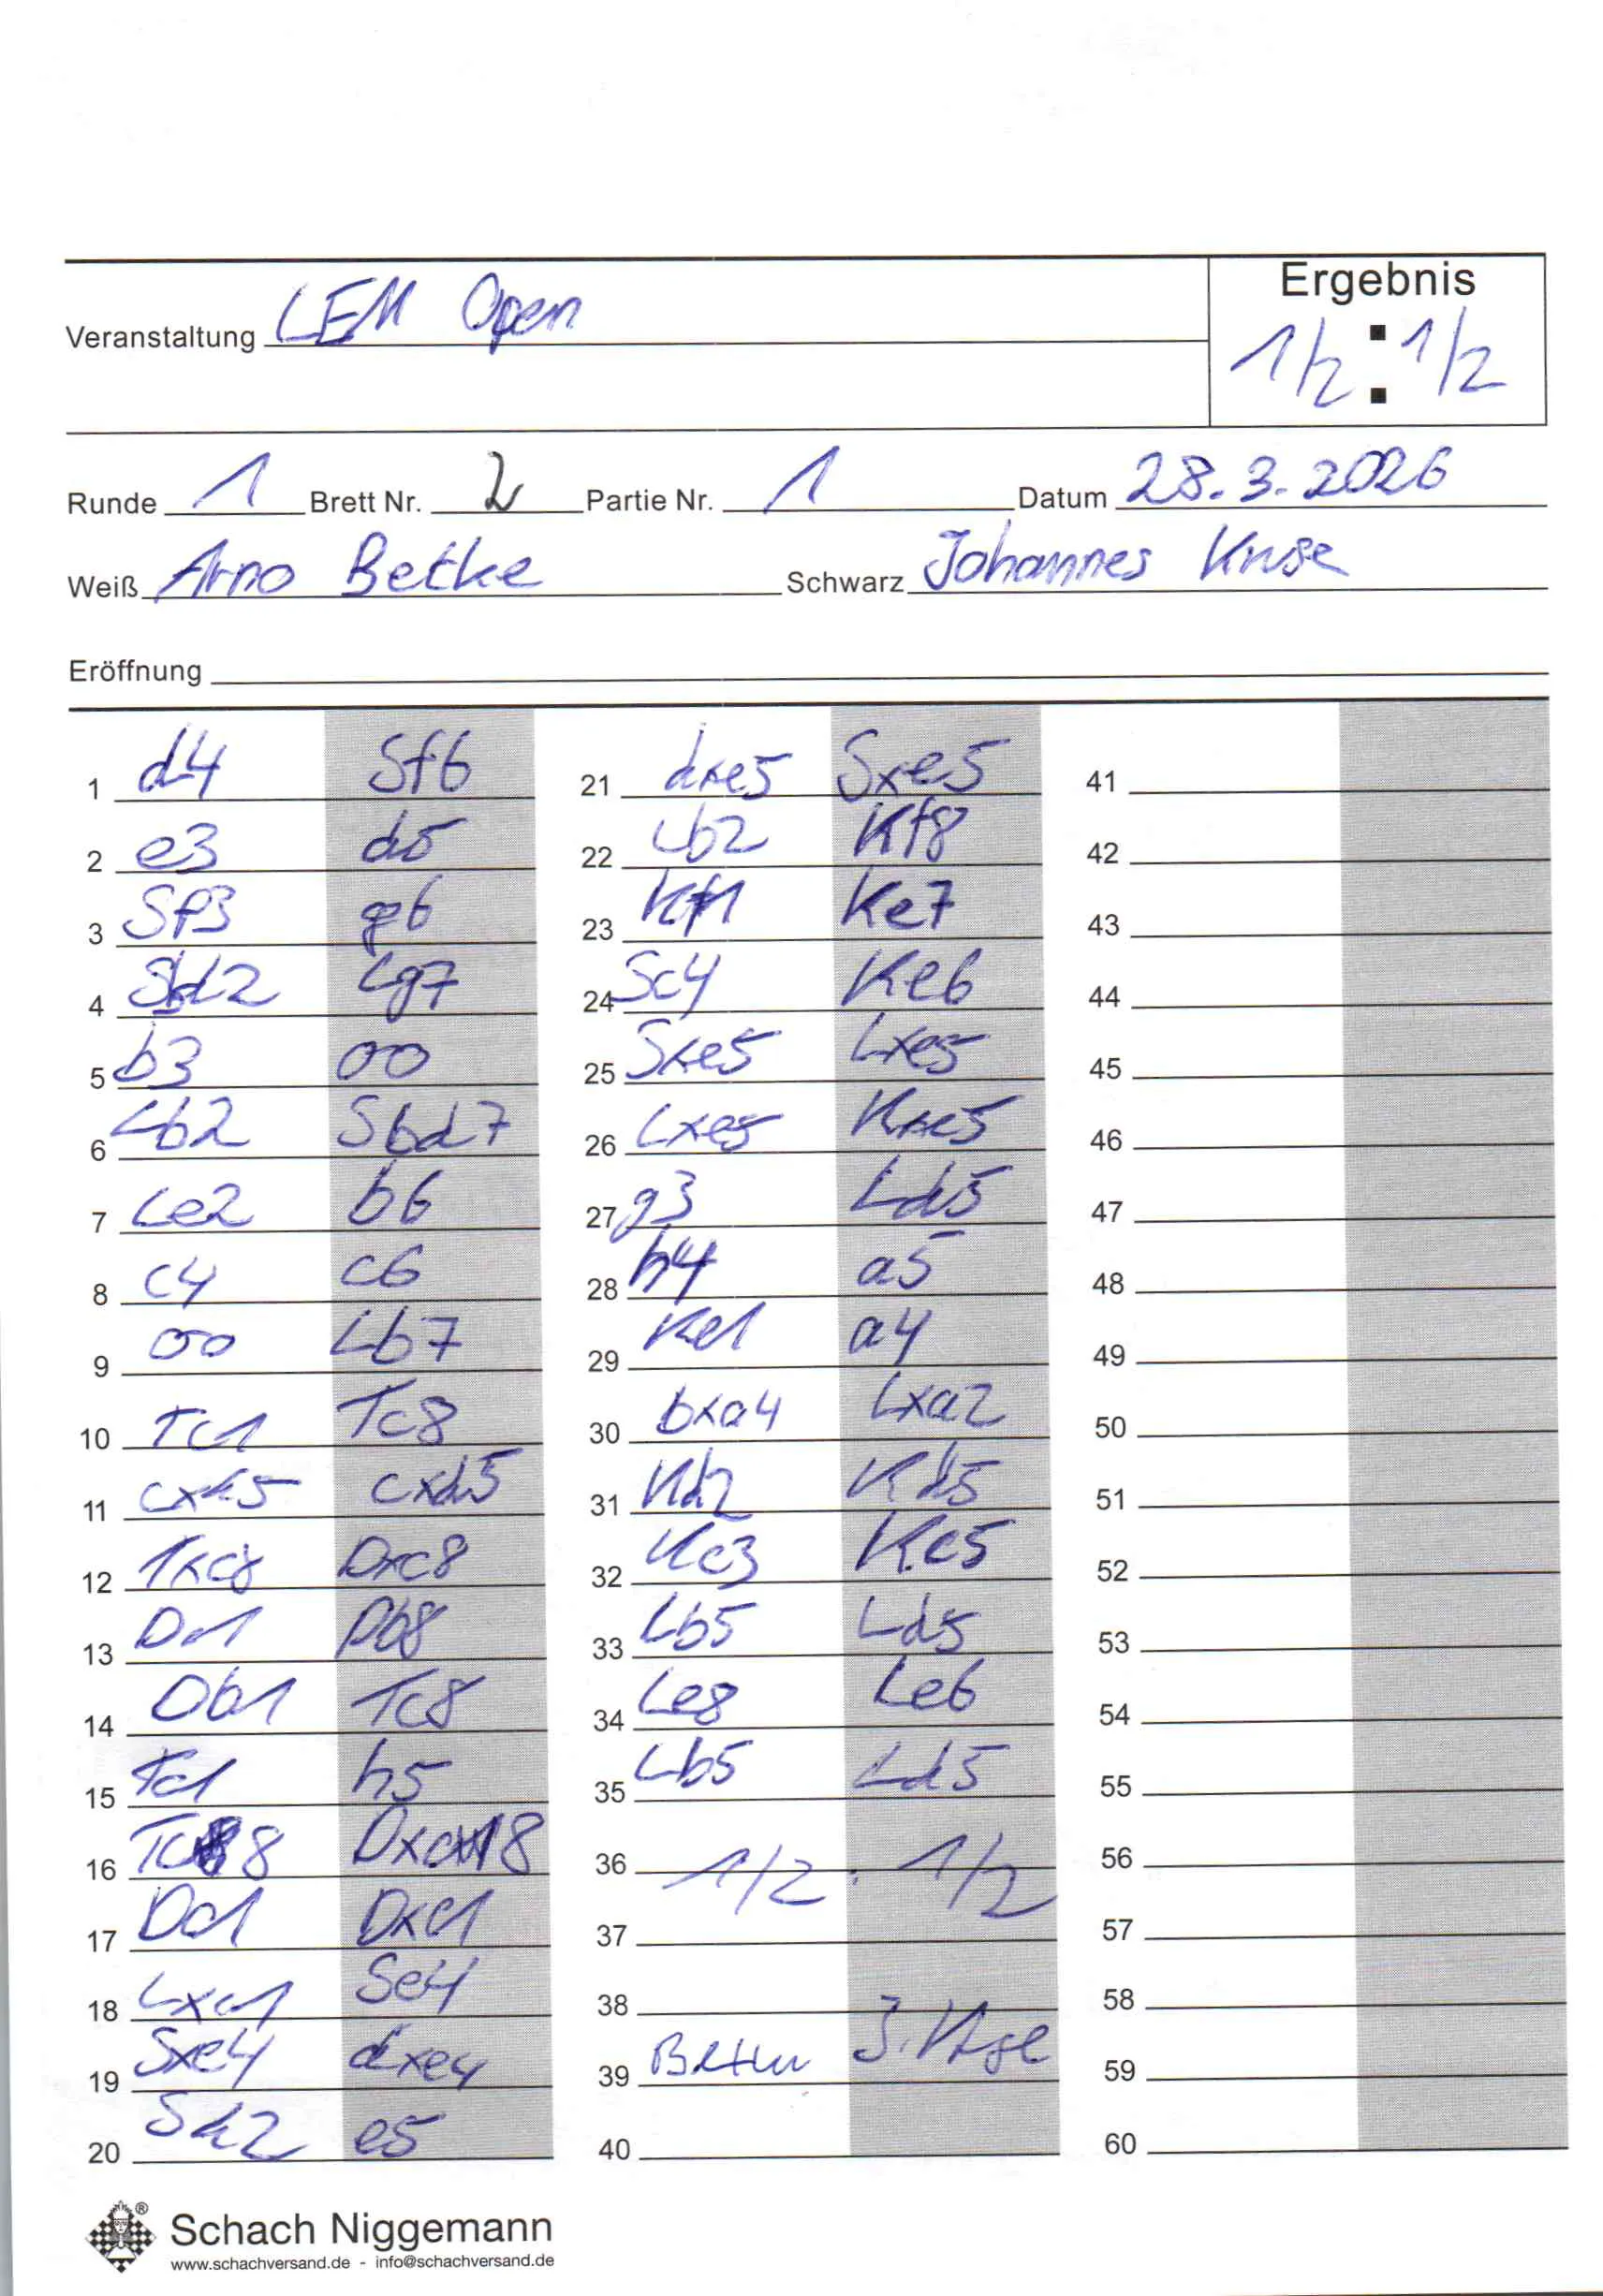 Ergebnis
Veranstaltung LEM Open
1/2 : 1/2
Runde 1 Brett Nr. 2 Partie Nr. 1 Datum 28.3.2026
Weiß Arno Betke Schwarz Johannes Kruse
Eröffnung
1 d4 Sf6
2 e3 d5
3 Sf3 g6
4 Sbd2 Lg7
5 b3 00
6 Lb2 Sbd7
7 Le2 b6
8 c4 c6
9 00 Lb7
10 Tc1 Tc8
11 cxd5 cxd5
12 Txc8 Dxc8
13 Da1 Db8
14 Db1 Tc8
15 Tc1 h5
16 Tc8 Dxc8
17 Dc1 Dxc1
18 Lxc1 Se4
19 Sxe4 dxe4
20 Sd2 e5
21 dxe5 Sxe5
22 Lb2 Kf8
23 Kf1 Ke7
24 Sc4 Ke6
25 Sxe5 Lxe5
26 Lxe5 Kxe5
27 g3 Ld5
28 h4 a5
29 Ke1 a4
30 bxa4 Lxa2
31 Kd2 Kd5
32 Kc3 Kc5
33 Lb5 Ld5
34 Le8 Le6
35 Lb5 Ld5
36 1/2 : 1/2
37
38
39
40
41
42
43
44
45
46
47
48
49
50
51
52
53
54
55
56
57
58
59
60
Schach Niggemann
www.schachversand.de - info@schachversand.de